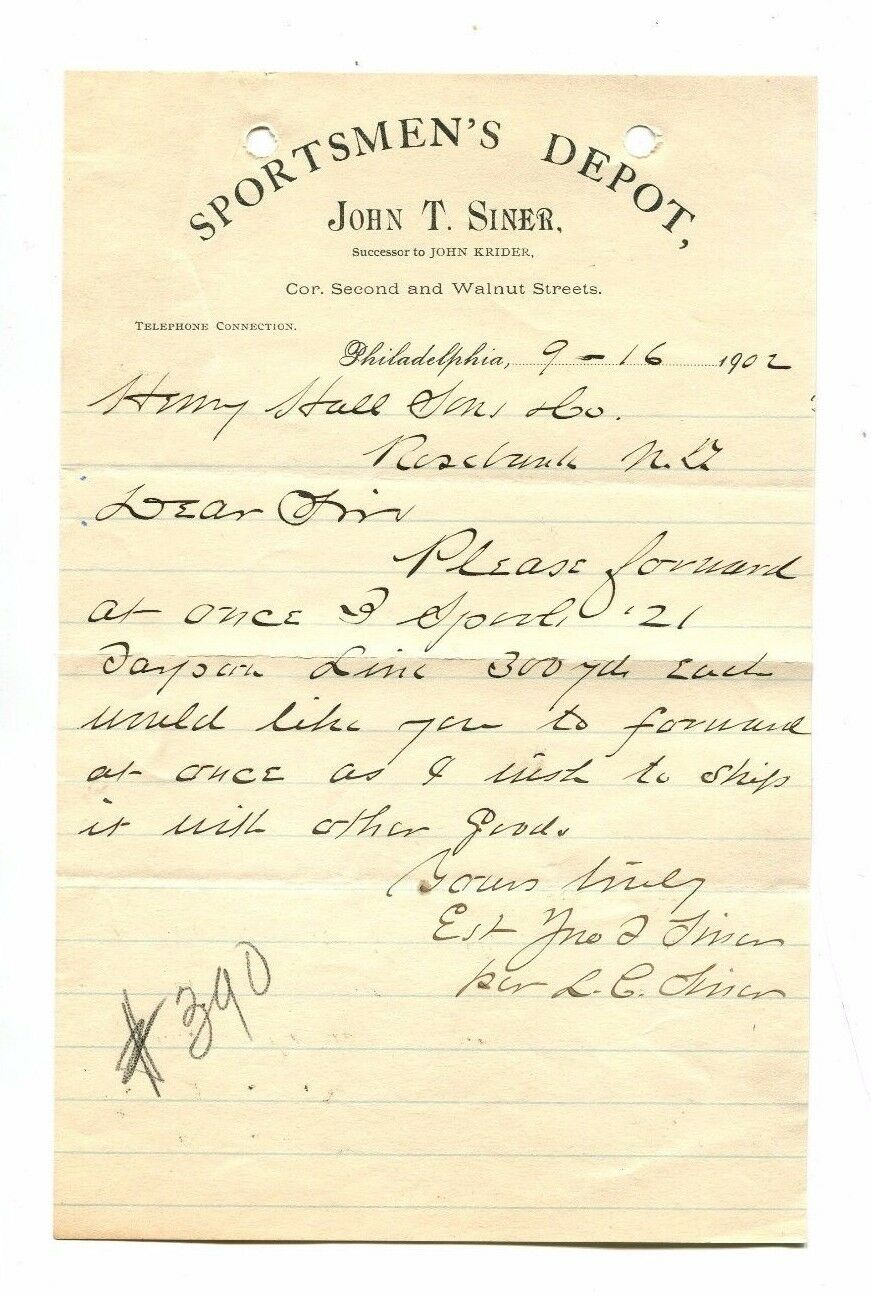 SPORTSMEN'S DEPOT,
JOHN T. SINER,
Successor to JOHN KRIDER,
Cor. Second and Walnut Streets.
TELEPHONE CONNECTION.
Philadelphia, 9-16 1902
Henry Hall Sons Co.
Rosebank N.Y
Dear Sir
Please forward
at once 3 Spools '21
Tarpon Line 300 yds each
would like you to forward
at once as I wish to ship
it with other goods
Yours truly
Est Jno T Siner
per L.C. Siner
390